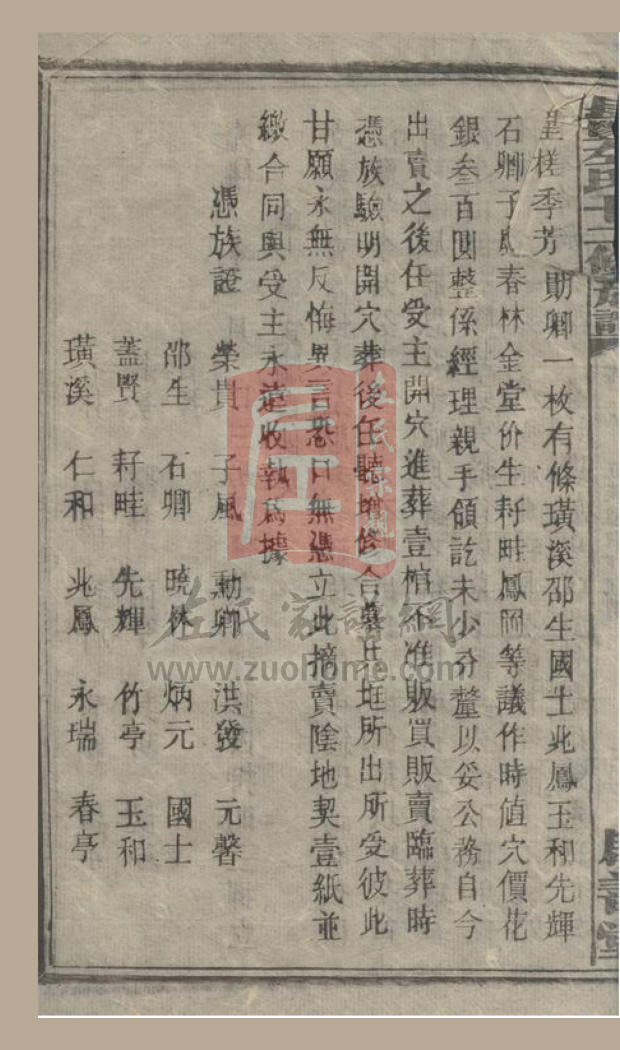 左氏十二修族譜
季芳勛卿一枚有條璜溪邵生國士兆鳳玉和先輝
石卿子風春林金堂份生耔畦鳳岡等議作時值穴價花
銀叁百圓整係經理親手領訖未少分釐以妥公務自今
出賣之後任受主開穴進葬壹棺不准販買販賣臨葬時
憑族驗明開穴葬後任聽增修合墓此坵所出所受彼此
甘願永無反悔異言恐口無憑立此摘賣陰地契壹紙並
繳合同與受主永遠收執爲據
憑族證 榮貴 子風 勳卿 洪發 元馨
邵生 石卿 曉林 炳元 國士
蓋賢 耔畦 先輝 竹亭 玉和
璜溪 仁和 兆鳳 永瑞 春亭
左氏家譜網
www.zuohome.com